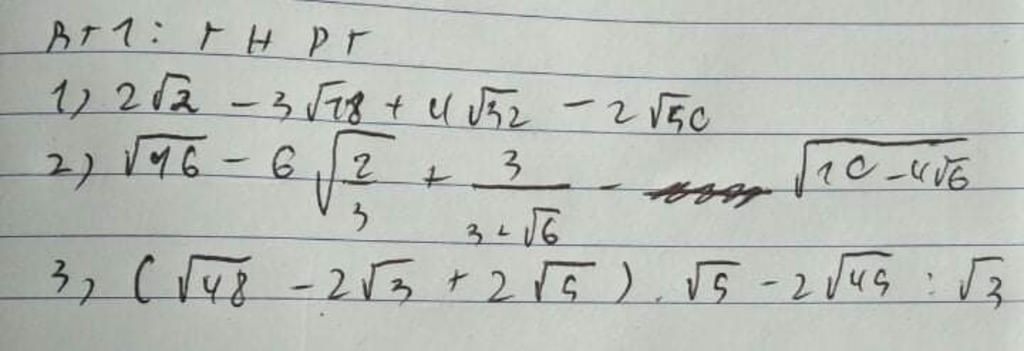 BT1: T H P T
1) 2√2 - 3√18 + 4√32 - 2√50
2) √96 - 6√(2/3) + 3/(3+√6) - √(10-4√6)
3, (√48 - 2√3 + 2√5). √5 - 2√45 : √3